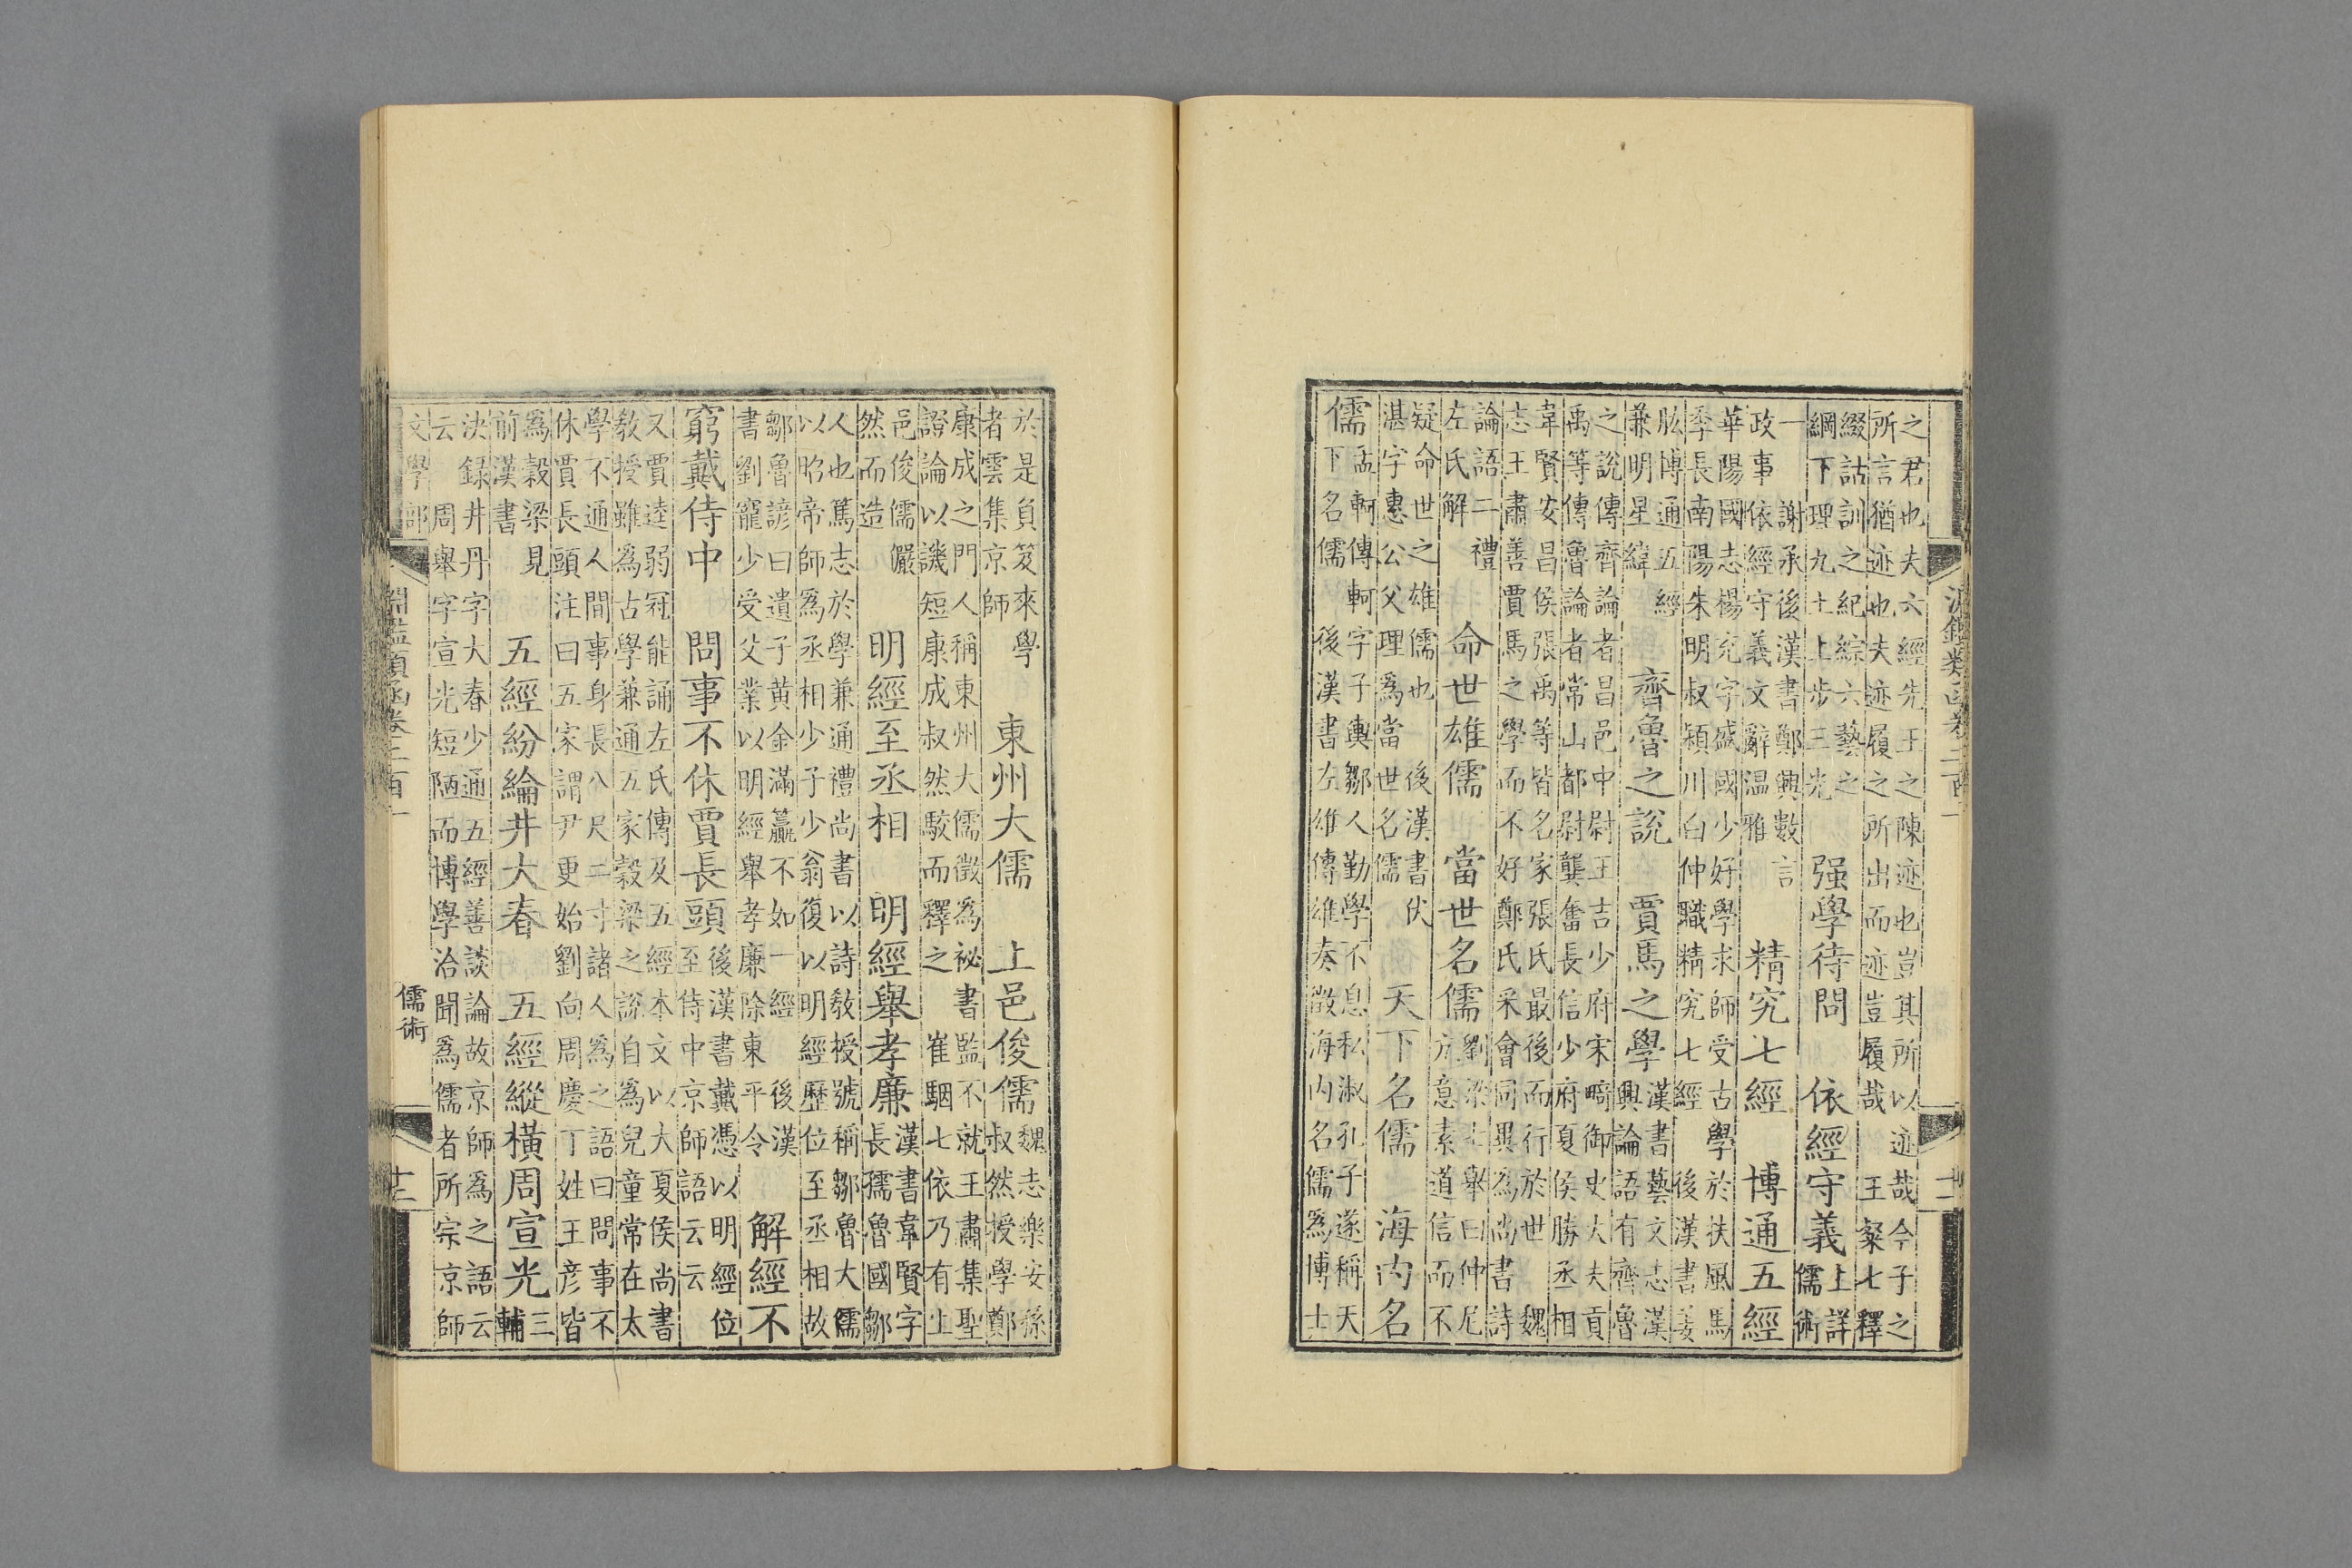 淵鑑類函卷二百一
之君也夫六經先王之陳迹也豈其所以迹哉今子之
所言猶迹也夫迹履之所出而迹豈履哉 王粲七釋
綴詁訓之紀綜六藝之
綱下理九土上步三光
强學待問 依經守義
上詳
儒術
一 謝承後漢書鄭興數言
政事依經守義文辭温雅
精究七經 博通五經
華陽國志楊充字盛國少好學求師受古學於扶風馬
季長南陽朱明叔潁川白仲職精究七經 後漢書姜
肱博通五經
兼明星緯
齊魯之說 賈馬之學
漢書藝文志漢
興論語有齊魯
之說傳齊論者昌邑中尉王吉少府宋畸御史大夫貢
禹等傳魯論者常山都尉龔奮長信少府夏侯勝丞相
韋賢安昌侯張禹等皆名家張氏最後而行於世 魏
志王肅善賈馬之學而不好鄭氏采會同異爲尚書詩
論語二禮
左氏解
命世雄儒 當世名儒
劉梁七舉曰仲尼
亢意素道信而不
疑命世之雄儒也 後漢書伏
湛字惠公父理爲當世名儒
天下名儒 海内名
儒
孟軻傳軻字子輿鄒人勤學不息私淑孔子遂稱天
下名儒 後漢書左雄傳雄奏徵海内名儒爲博士
於是負笈來學
者雲集京師
東州大儒 上邑俊儒
魏志樂安孫
叔然授學鄭
康成之門人稱東州大儒徵爲祕書監不就王肅集聖
證論以譏短康成叔然駁而釋之 崔駰七依乃有上
邑俊儒儼
然而造
明經至丞相 明經舉孝廉
漢書韋賢字
長孺魯國鄒
人也篤志於學兼通禮尚書以詩敎授號稱鄒魯大儒
以昭帝師爲丞相少子少翁復以明經歷位至丞相故
鄒魯諺曰遺子黄金滿籯不如一經 後漢
書劉寵少受父業以明經舉孝廉除東平令
解經不
窮戴侍中 問事不休賈長頭
後漢書戴憑以明經位
至侍中京師語云云
又賈逵弱冠能誦左氏傳及五經本文以大夏侯尚書
敎授雖爲古學兼通五家穀梁之說自爲兒童常在太
學不通人間事身長八尺二寸諸人爲之語曰問事不
休賈長頭注曰五家謂尹更始劉向周慶丁姓王彦皆
爲穀梁見
前漢書
五經紛綸井大春 五經縱橫周宣光
三
輔
決録井丹字大春少通五經善談論故京師爲之語云
云 周舉字宣光短陋而博學洽聞爲儒者所宗京師
文學部
淵鑑類函卷二百一
儒術